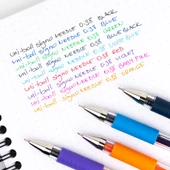 uni-ball Signo NEEDLE 0.38 BLACK
uni-ball Signo NEEDLE 0.38 BLUE
uni-ball Signo NEEDLE 0.38 GREEN
uni-ball Signo NEEDLE 0.38 BLUE BLACK
uni-ball Signo NEEDLE 0.38
uni-ball Signo NEEDLE 0.38 RED
uni-ball Signo NEEDLE 0.38 VIOLET
uni-ball Signo NEEDLE 0.38 BABY PINK
uni-ball Signo NEEDLE 0.38 ORANGE